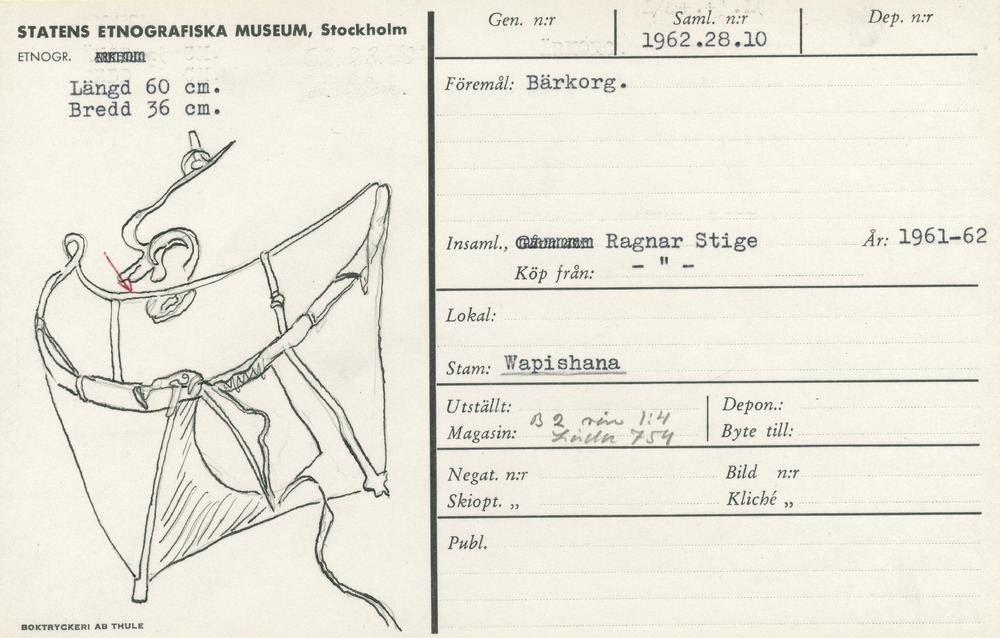 STATENS ETNOGRAFISKA MUSEUM, Stockholm
ETNOGR.
Längd 60 cm.
Bredd 36 cm.
BOKTRYCKERI AB THULE
Gen. n:r
Saml. n:r
1962.28.10
Dep. n:r
Föremål: Bärkorg.
Insaml., Ragnar Stige År: 1961-62
Köp från: - " -
Lokal:
Stam: Wapishana
Utställt: B 2 1:4
Magasin: 754
Depon.:
Byte till:
Negat. n:r
Skiopt. „
Bild n:r
Kliché „
Publ.